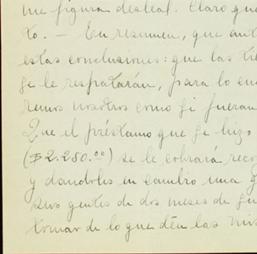 me figura desleal. Claro que
to. — En resumen, que ante
estas conclusiones: que las tie
se le respetarán, para lo cu
remos nosotros como si fueran
Que el préstamo que se hizo
($2.250.00) se le cobrará reco
y dandoles en cambio una g
sus gentes de dos meses de
tomar de lo que den las mis